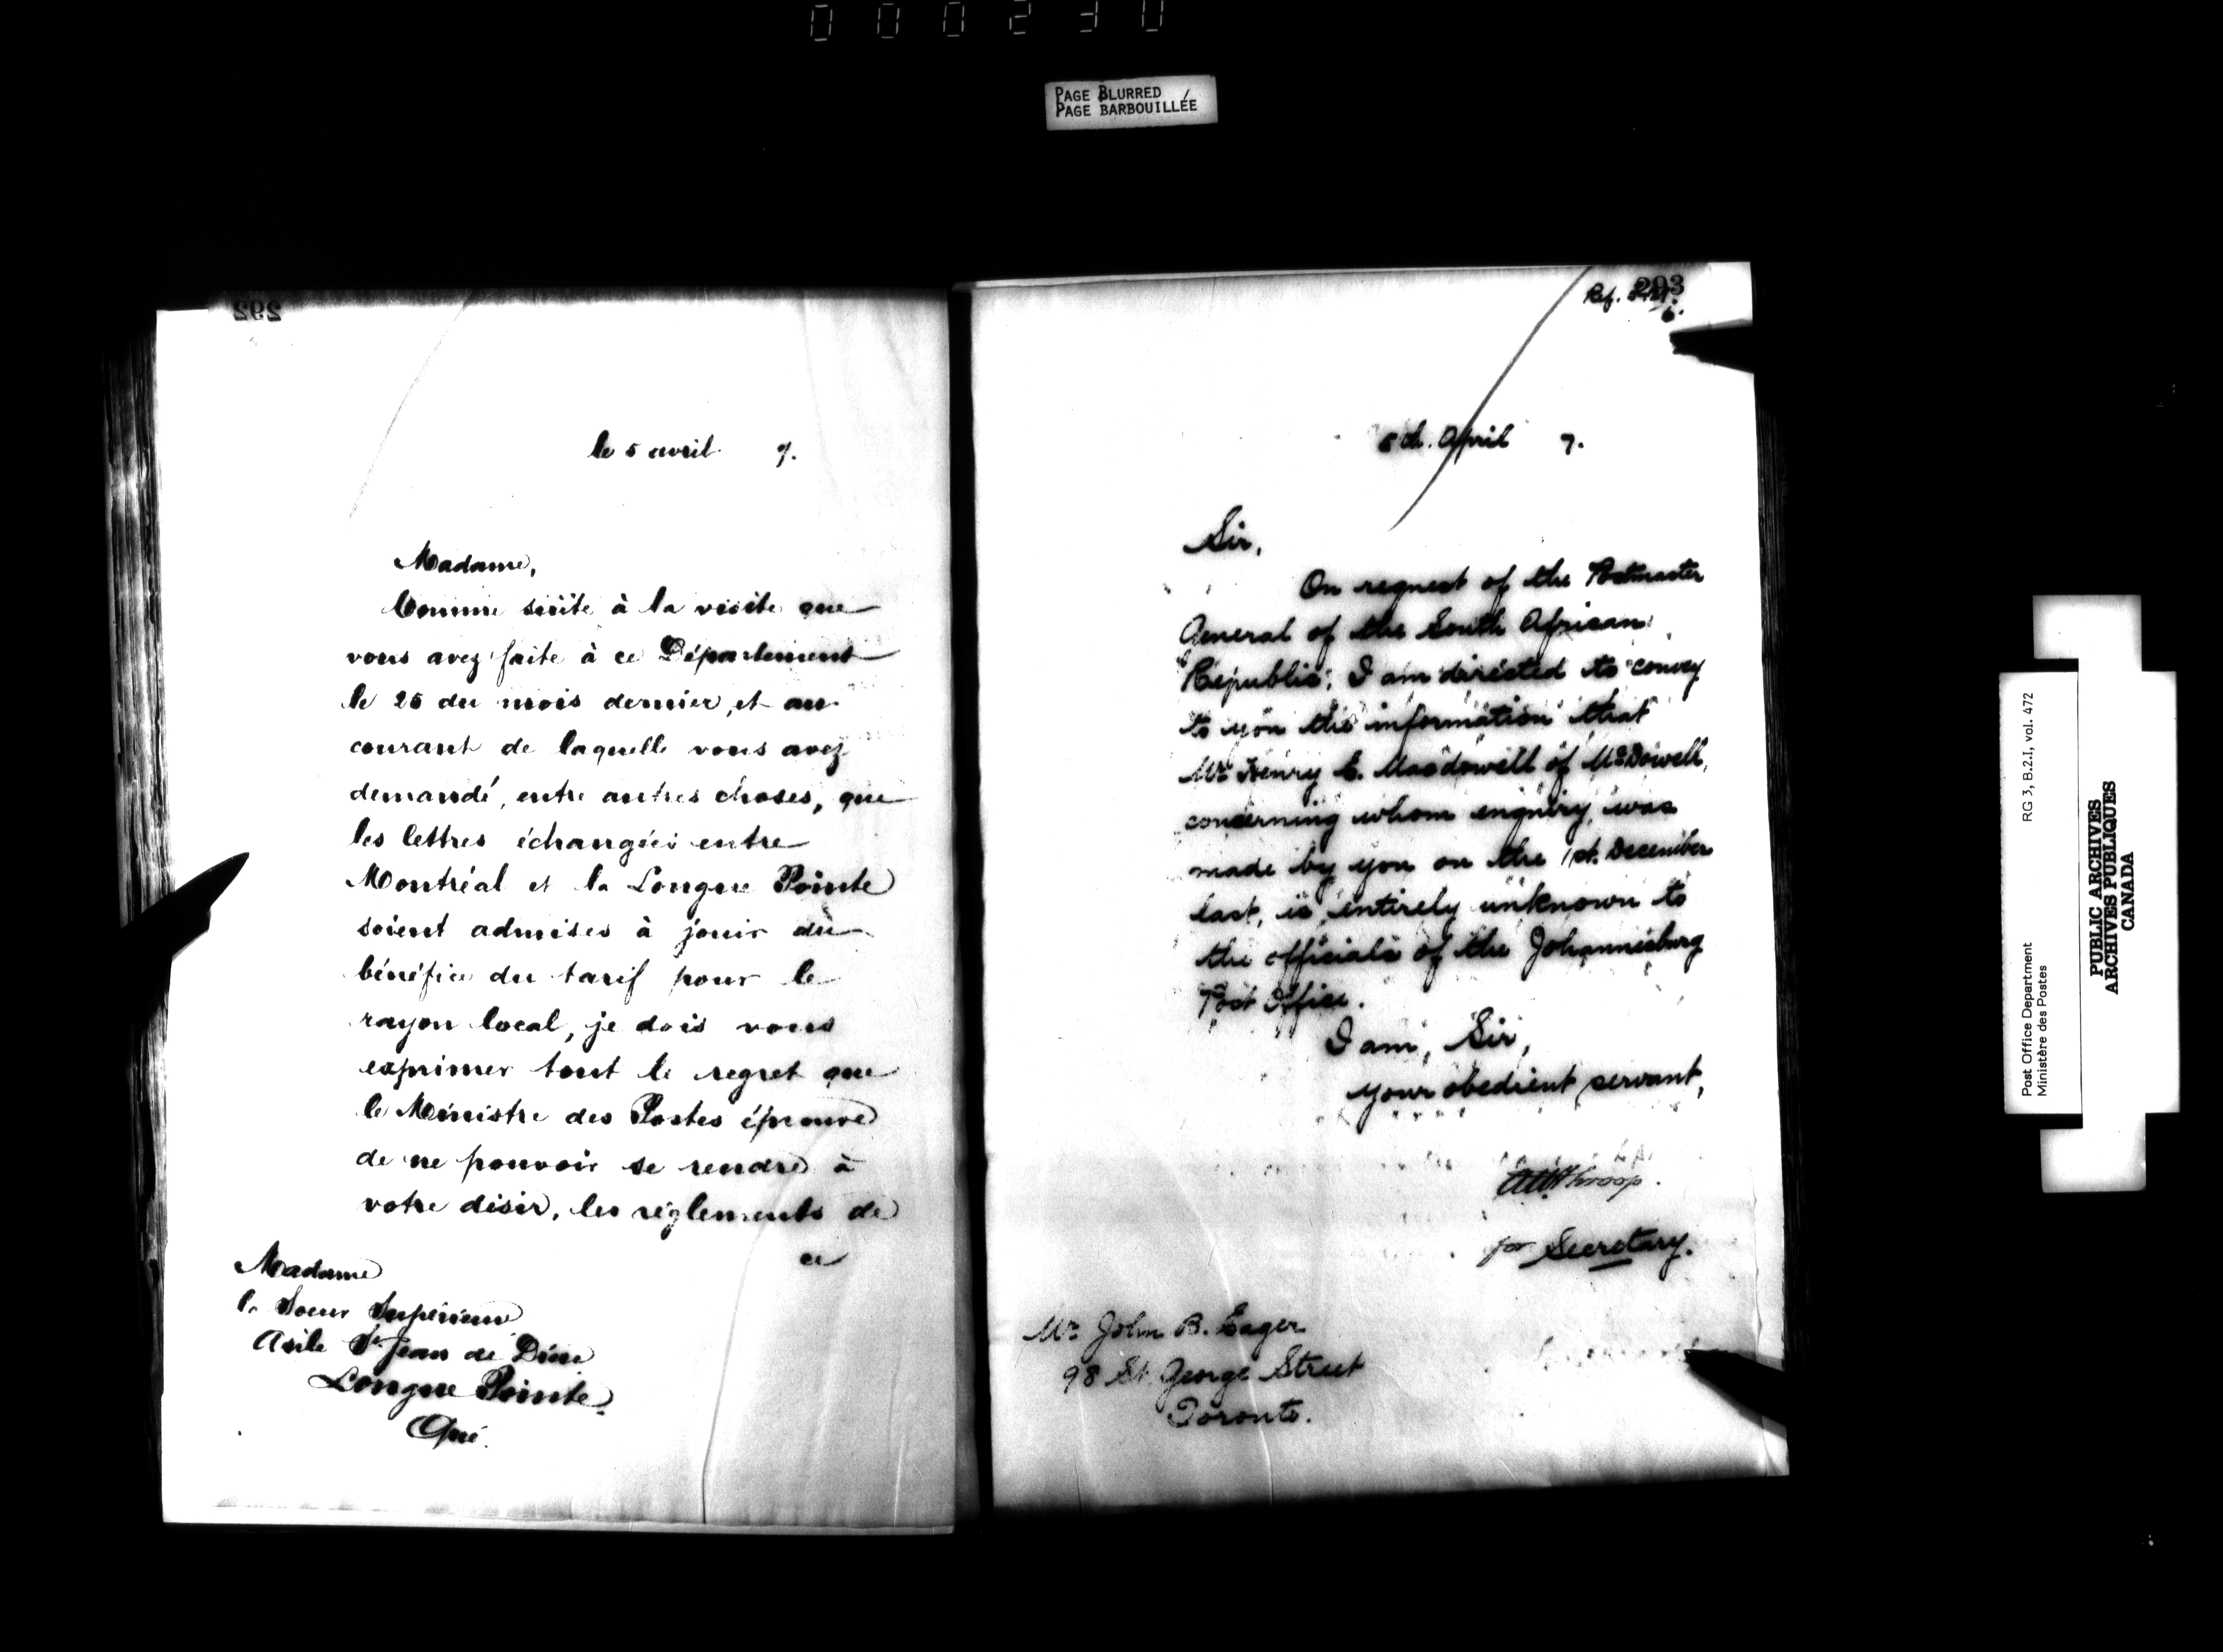 000230
PAGE BLURRED
PAGE BARBOUILLÉE
292
le 5 avril 7.
Madame,
Comme suite à la visite que
vous avez faite à ce Département
le 25 du mois dernier, et au
courant de laquelle vous avez
demandé, entre autres choses, que
les lettres échangées entre
Montréal et la Longue Pointe
soient admises à jouir du
bénéfice du tarif pour le
rayon local, je dois vous
exprimer tout le regret que
le Ministre des Postes éprouve
de ne pouvoir se rendre à
votre désir, les règlements de
ce
Madame
la Soeur Supérieure
Asile St Jean de Dieu
Longue Pointe
Qué.
293
Ref.
5th. April 7.
Sir,
On request of the Postmaster
General of the South African
Republic, I am directed to convey
to you the information that
Mr Henry C. Macdowell of McDowell,
concerning whom enquiry was
made by you on the 1st. December
last, is entirely unknown to
the officials of the Johannesburg
Post Office.
I am, Sir,
your obedient servant,
Throop.
for Secretary.
Mr John B. Eager
98 St. George Street
Toronto.
Post Office Department RG 3, B.2.I, vol. 472
Ministère des Postes
PUBLIC ARCHIVES
ARCHIVES PUBLIQUES
CANADA